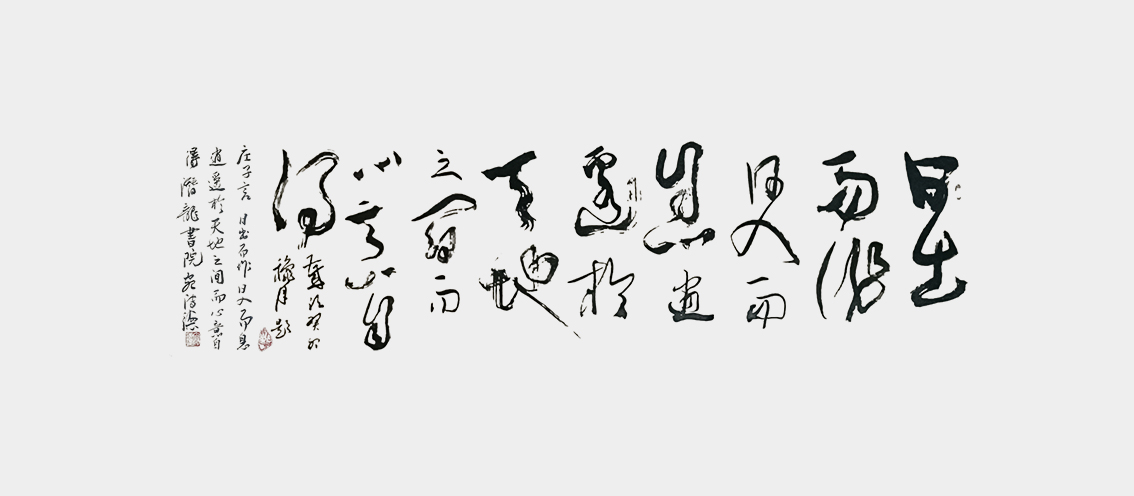 日出
而作
日入而
息逍
遥於
天地
之间而
心意自
得
岁次癸卯
穐月题
庄子言日出而作日入而息
逍遥於天地之间而心意自
得潜龙書院